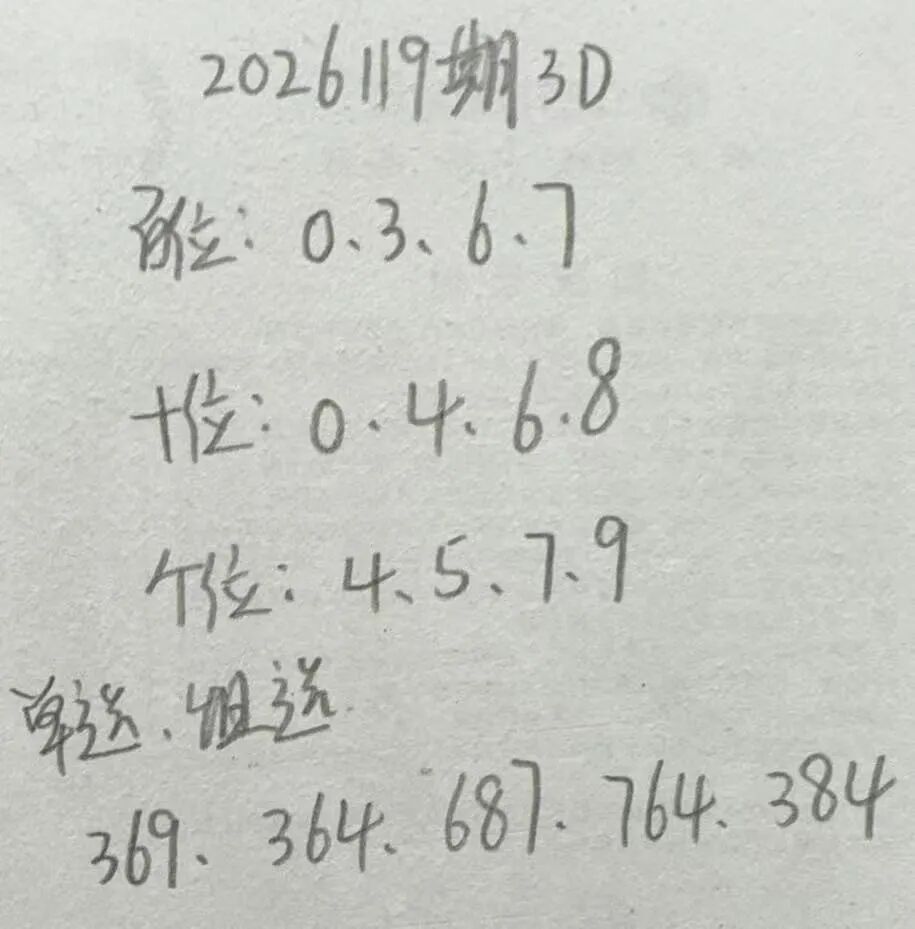 2026119期3D
百位：0、3、6、7
十位：0、4、6、8
个位：4、5、7、9
单送、组送
369、364、687、764、384